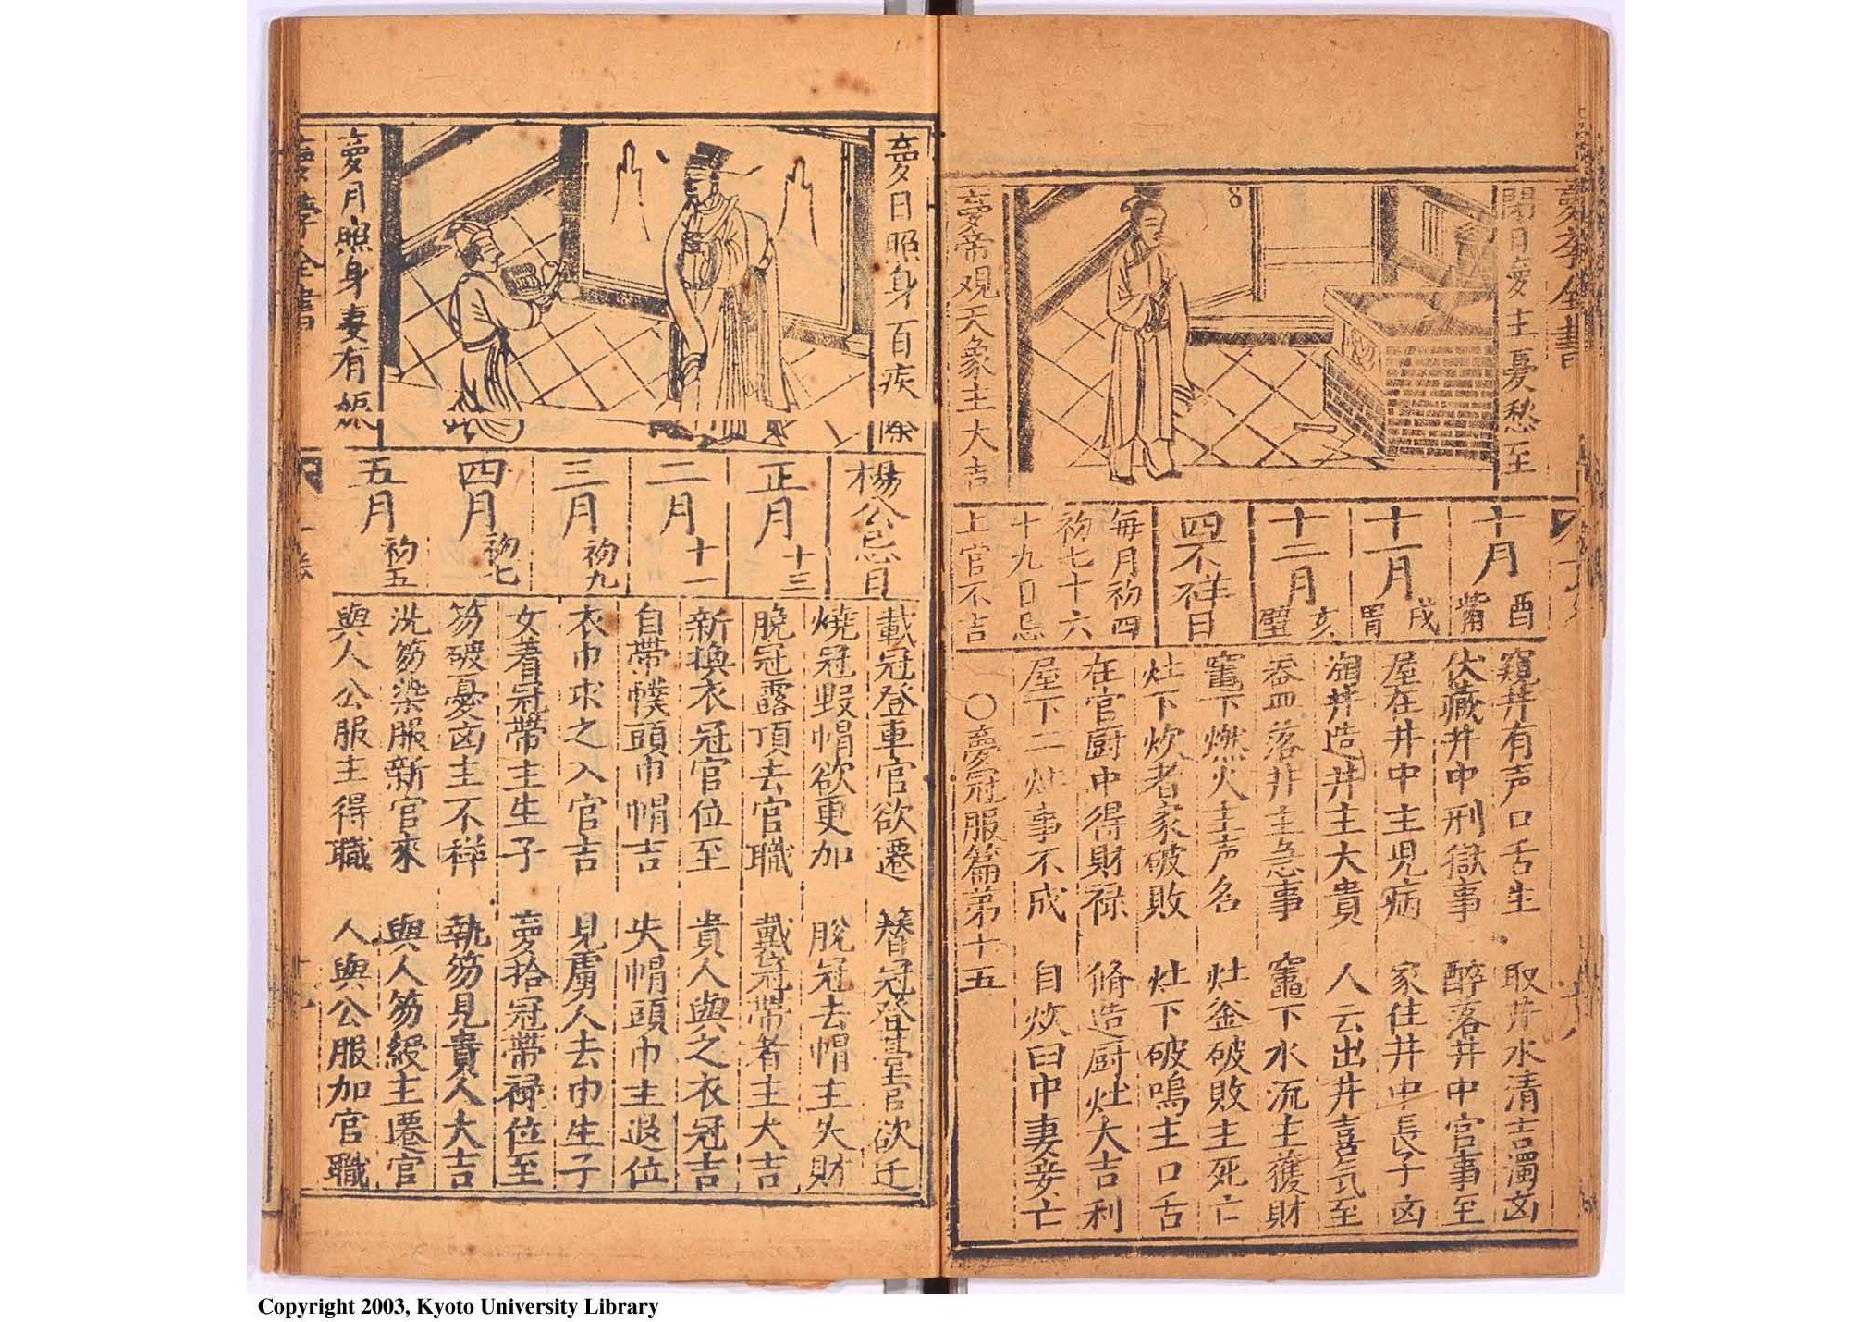 夢李全書
閉日夢主憂愁至
夢帝观天象主大吉
十月 酉觜
十一月 戌胃
十二月 亥壁
四不祥日
每月初四
初七十六
十九日忌
上官不吉
窺井有声口舌生 取井水清吉濁凶
伏藏井中刑獄事 醉落井中官事至
屋在井中主児病 家住井中長子凶
淘井造井主大貴 人云出井喜気至
落井主急事 竈下水流主獲財
竈下燃火主声名 灶釜破敗主死亡
灶下炊者家破敗 灶下破鳴主口舌
在官厨中得財禄 脩造厨灶大吉利
屋下二灶事不成 自炊臼中妻妾亡
〇夢冠服篇第十五
夢日照身百疾除
夢月照身妻有娠
楊公忌日
正月 十三
二月 十一
三月 初九
四月 初七
五月 初五
載冠登車官欲遷 簪冠登臺官欲迁
燒冠毀帽欲更加 脫冠去帽主失財
脫冠露頂去官職 戴冠帶者主大吉
新換衣冠官位至 貴人與之衣冠吉
自帶幞頭巾帽吉 失帽頭巾主退位
衣巾求之入官吉 見虜人去巾生子
女着冠帶主生子 夢拾冠帶禄位至
笏破憂凶主不祥 執笏見貴人大吉
洗笏染服新官來 與人笏綬主遷官
與人公服主得職 人與公服加官職
Copyright 2003, Kyoto University Library